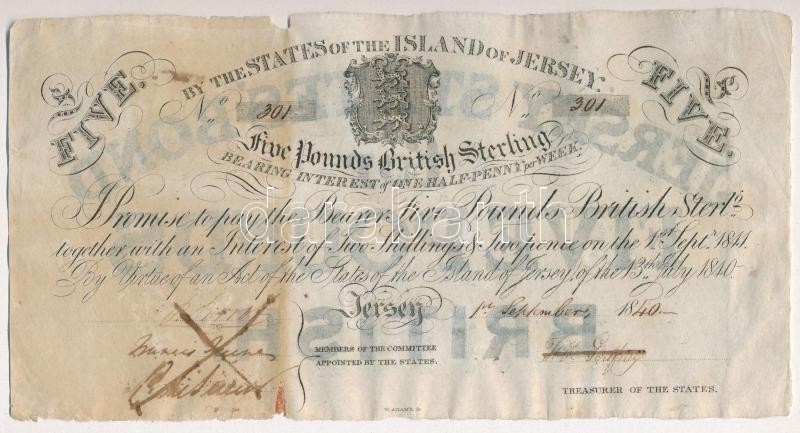 BY THE STATES OF THE ISLAND OF JERSEY.
£ FIVE.
£ FIVE.
No. 301
No. 301
Five Pounds British Sterling
BEARING INTEREST of ONE HALF-PENNY per WEEK.
I Promise to pay the Bearer Five Pounds British Sterl.g
together with an Interest of Two Shillings & Two pence on the 1st Septr. 1841.
By Virtue of an Act of the States of the Island of Jersey, of the 13th July 1840
Jersey 1st September, 1840
MEMBERS OF THE COMMITTEE
APPOINTED BY THE STATES.
TREASURER OF THE STATES.
W. ADAMS, Sc.
darabanth
JERSEY STATES' BOND
FIVE POUNDS
BRITISH